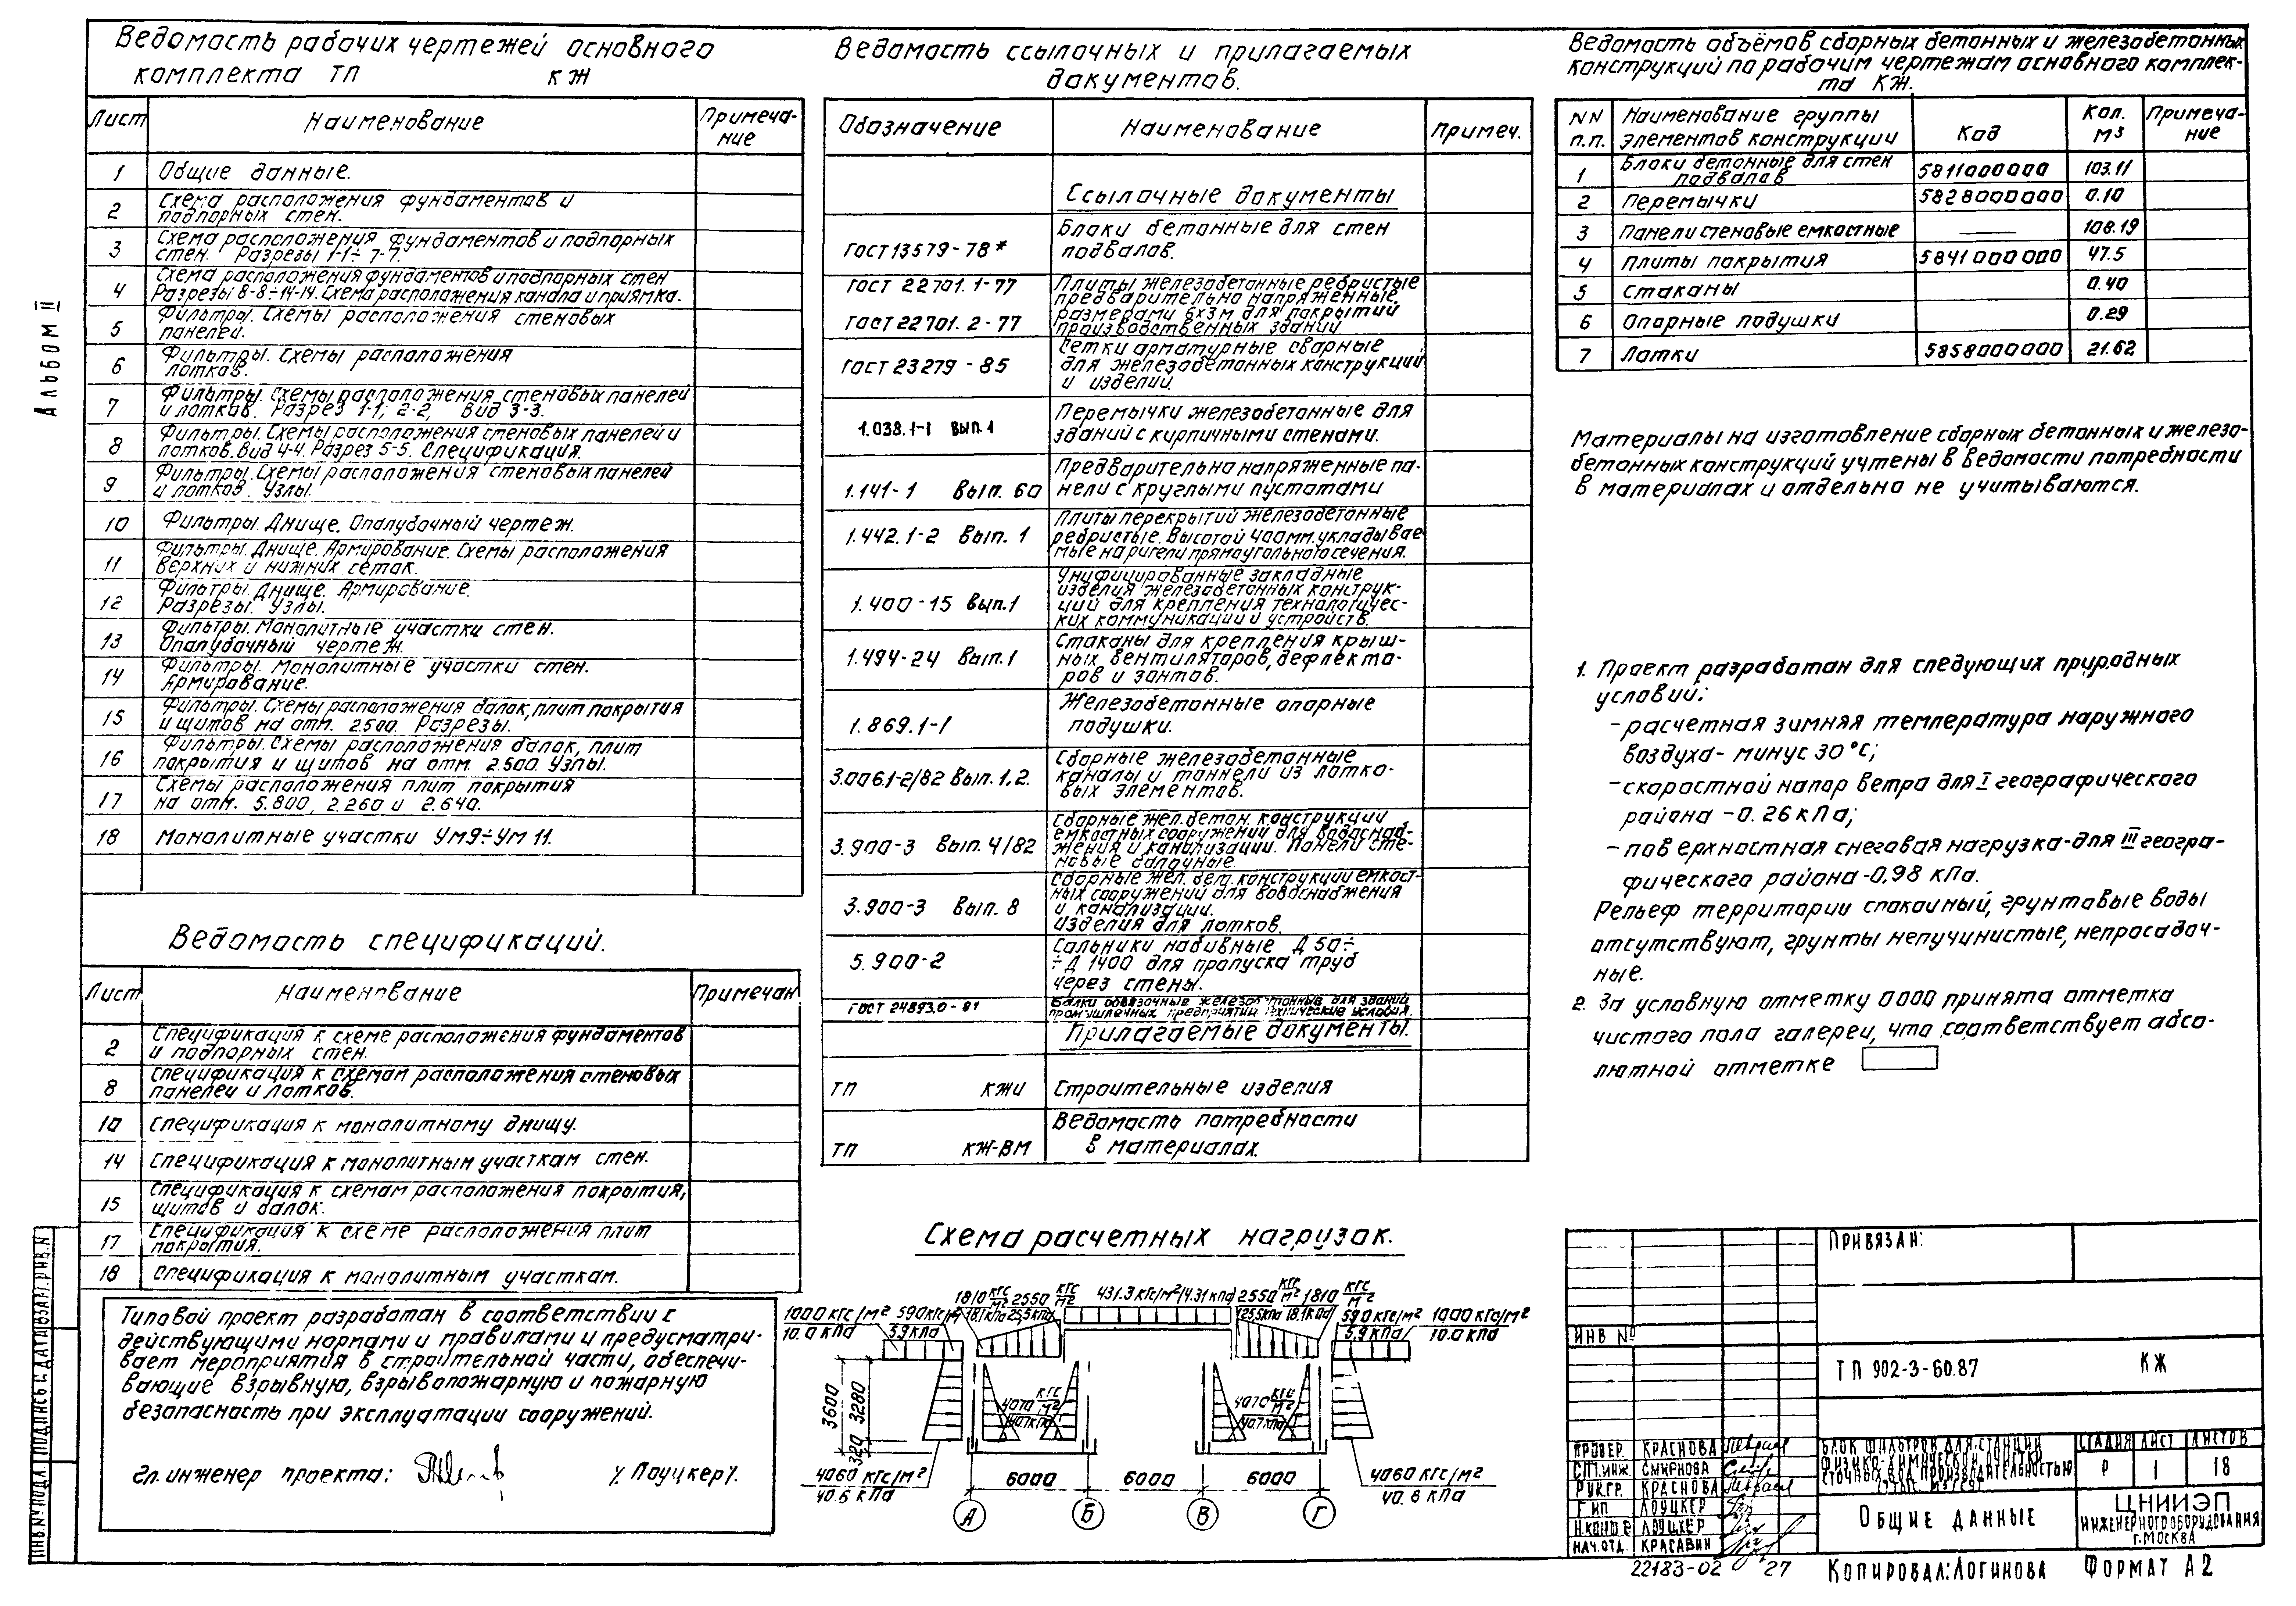 Альбом II
Ведомость рабочих чертежей основного
комплекта ТП КЖ
Лист Наименование Примеча-
ние
1 Общие данные.
2 Схема расположения фундаментов и
подпорных стен.
3 Схема расположения фундаментов и подпорных
стен. Разрезы 1-1÷7-7.
4 Схема расположения фундаментов и подпорных стен
Разрезы 8-8÷14-14. Схема расположения канала и приямка.
5 Фильтры. Схемы расположения стеновых
панелей.
6 Фильтры. Схемы расположения
лотков.
7 Фильтры. Схемы расположения стеновых панелей
и лотков. Разрез 1-1; 2-2, Вид 3-3.
8 Фильтры. Схемы расположения стеновых панелей и
лотков. Вид 4-4. Разрез 5-5. Спецификация.
9 Фильтры. Схемы расположения стеновых панелей
и лотков. Узлы.
10 Фильтры. Днище. Опалубочный чертеж.
11 Фильтры. Днище. Армирование. Схемы расположения
верхних и нижних сеток.
12 Фильтры. Днище. Армирование.
Разрезы. Узлы.
13 Фильтры. Монолитные участки стен.
Опалубочный чертеж.
14 Фильтры. Монолитные участки стен.
Армирование.
15 Фильтры. Схемы расположения балок, плит покрытия
и щитов на отм. 2.500. Разрезы.
16 Фильтры. Схемы расположения балок, плит
покрытия и щитов на отм. 2.500. Узлы.
17 Схемы расположения плит покрытия
на отм. 5.800, 2.260 и 2.640.
18 Монолитные участки Ум9÷Ум 11.
Ведомость спецификаций.
Лист Наименование Примечан
2 Спецификация к схеме расположения фундаментов
и подпорных стен.
8 Спецификация к схемам расположения стеновых
панелей и лотков.
10 Спецификация к монолитному днищу.
14 Спецификация к монолитным участкам стен.
15 Спецификация к схемам расположения покрытия,
щитов и балок.
17 Спецификация к схеме расположения плит
покрытия.
18 Спецификация к монолитным участкам.
Типовой проект разработан в соответствии с
действующими нормами и правилами и предусматри-
вает мероприятия в строительной части, обеспечи-
вающие взрывную, взрывопожарную и пожарную
безопасность при эксплуатации сооружений.
Гл. инженер проекта: /Лоуцкер/.
Ведомость ссылочных и прилагаемых
документов.
Обозначение Наименование Примеч.
Ссылочные документы
ГОСТ 13579-78* Блоки бетонные для стен
подвалов.
ГОСТ 22701.1-77 Плиты железобетонные ребристые
предварительно напряженные,
ГОСТ 22701.2-77 размерами 6х3м для покрытий
производственных зданий
ГОСТ 23279-85 Сетки арматурные сварные
для железобетонных конструкций
и изделий.
1.038.1-1 вып. 1 Перемычки железобетонные для
зданий с кирпичными стенами.
1.141-1 Вып. 60 Предварительно напряженные па-
нели с круглыми пустотами
1.442.1-2 Вып. 1 Плиты перекрытий железобетонные
ребристые. Высотой 400мм. укладывае
мые на ригели прямоугольного сечения.
1.400-15 Вып.1 Унифицированные закладные
изделия железобетонных конструк-
ций для крепления технологичес-
ких коммуникаций и устройств.
1.494-24 Вып.1 Стаканы для крепления крыш-
ных вентиляторов, дефлекто-
ров и зонтов.
1.869.1-1 Железобетонные опорные
подушки.
3.006.1-2/82 Вып. 1,2. Сборные железобетонные
каналы и тоннели из лотко-
вых элементов.
3.900-3 Вып. 4/82 Сборные жел. бетон. конструкции
емкостных сооружений для водоснаб-
жения и канализации. Панели сте-
новые балочные.
3.900-3 Вып. 8 Сборные жел. бет. конструкции емкост-
ных сооружений для водоснабжения
и канализации.
Изделия для лотков.
5.900-2 Сальники набивные Д 50÷
÷Д 1400 для пропуска труб
через стены.
ГОСТ 24893.0-81 Балки обвязочные железобетонные для зданий
промышленных предприятий технические условия.
Прилагаемые документы.
ТП КЖИ Строительные изделия
ТП КЖ-ВМ Ведомость потребности
в материалах.
Схема расчетных нагрузок.
1000 кгс/м² 10.0 кПа 590 кгс/м² 5.9 кПа 1810 кгс/м² 18.1 кПа 2550 кгс/м² 25.5 кПа 431.3 кгс/м² (4.31 кПа) 2550 кгс/м² 25.5 кПа 1810 кгс/м² 18.1 кПа 590 кгс/м² 5.9 кПа 1000 кгс/м² 10.0 кПа
3600 3280 320
4070 кгс/м² 40.7 кПа 4070 кгс/м² 40.7 кПа
4060 кгс/м² 40.6 кПа 6000 6000 6000 4060 кгс/м² 40.8 кПа
А Б В Г
Ведомость объёмов сборных бетонных и железобетонных
конструкций по рабочим чертежам основного комплек-
та КЖ.
NN п.п. Наименование группы элементов конструкции Код Кол. м³ Примеча-
ние
1 Блоки бетонные для стен подвалов 5811000000 103.11
2 Перемычки 5828000000 0.10
3 Панели стеновые емкостные — 108.19
4 Плиты покрытия 5841000000 47.5
5 Стаканы 0.40
6 Опорные подушки 0.29
7 Лотки 5858000000 21.62
Материалы на изготовление сборных бетонных и железо-
бетонных конструкций учтены в ведомости потребности
в материалах и отдельно не учитываются.
1. Проект разработан для следующих природных
условий:
-расчетная зимняя температура наружного
воздуха- минус 30°С;
-скоростной напор ветра для I географического
района -0.26 кПа;
-поверхностная снеговая нагрузка-для III геогра-
фического района -0.98 кПа.
Рельеф территории спокойный, грунтовые воды
отсутствуют, грунты непучинистые, непросадоч-
ные.
2. За условную отметку 0000 принята отметка
чистого пола галереи, что соответствует абсо-
лютной отметке
ПРИВЯЗАН:
ИНВ №
ТП 902-3-60.87 КЖ
ПРОВЕР. КРАСНОВА
СТ.ИНЖ. СМИРНОВА
РУК.ГР. КРАСНОВА
ГИП ЛОУЦКЕР
Н.КОНТР ЛОУЦКЕР
НАЧ.ОТД. КРАСАВИН
БЛОК ФИЛЬТРОВ ДЛЯ СТАНЦИИ
ФИЗИКО-ХИМИЧЕСКОЙ ОЧИСТКИ
СТОЧНЫХ ВОД ПРОИЗВОДИТЕЛЬНОСТЬЮ
СТАДИЯ ЛИСТ ЛИСТОВ
Р 1 18
ОБЩИЕ ДАННЫЕ
ЦНИИЭП
ИНЖЕНЕРНОГО ОБОРУДОВАНИЯ
Г.МОСКВА
22183-02 27 КОПИРОВАЛ: ЛОГИНОВА ФОРМАТ А2
ИНВ.№ ПОДЛ. ПОДПИСЬ И ДАТА ВЗАМ.ИНВ.№